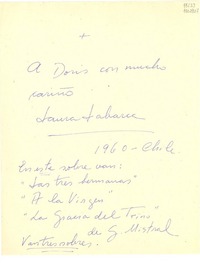 +
A Doris con mucho
cariño
Laura Labarca
1960 - Chile.
En este sobre van:
"Las tres hermanas"
"A la Virgen"
"La Gracia del Trino"
de G. Mistral
Van tres sobres.